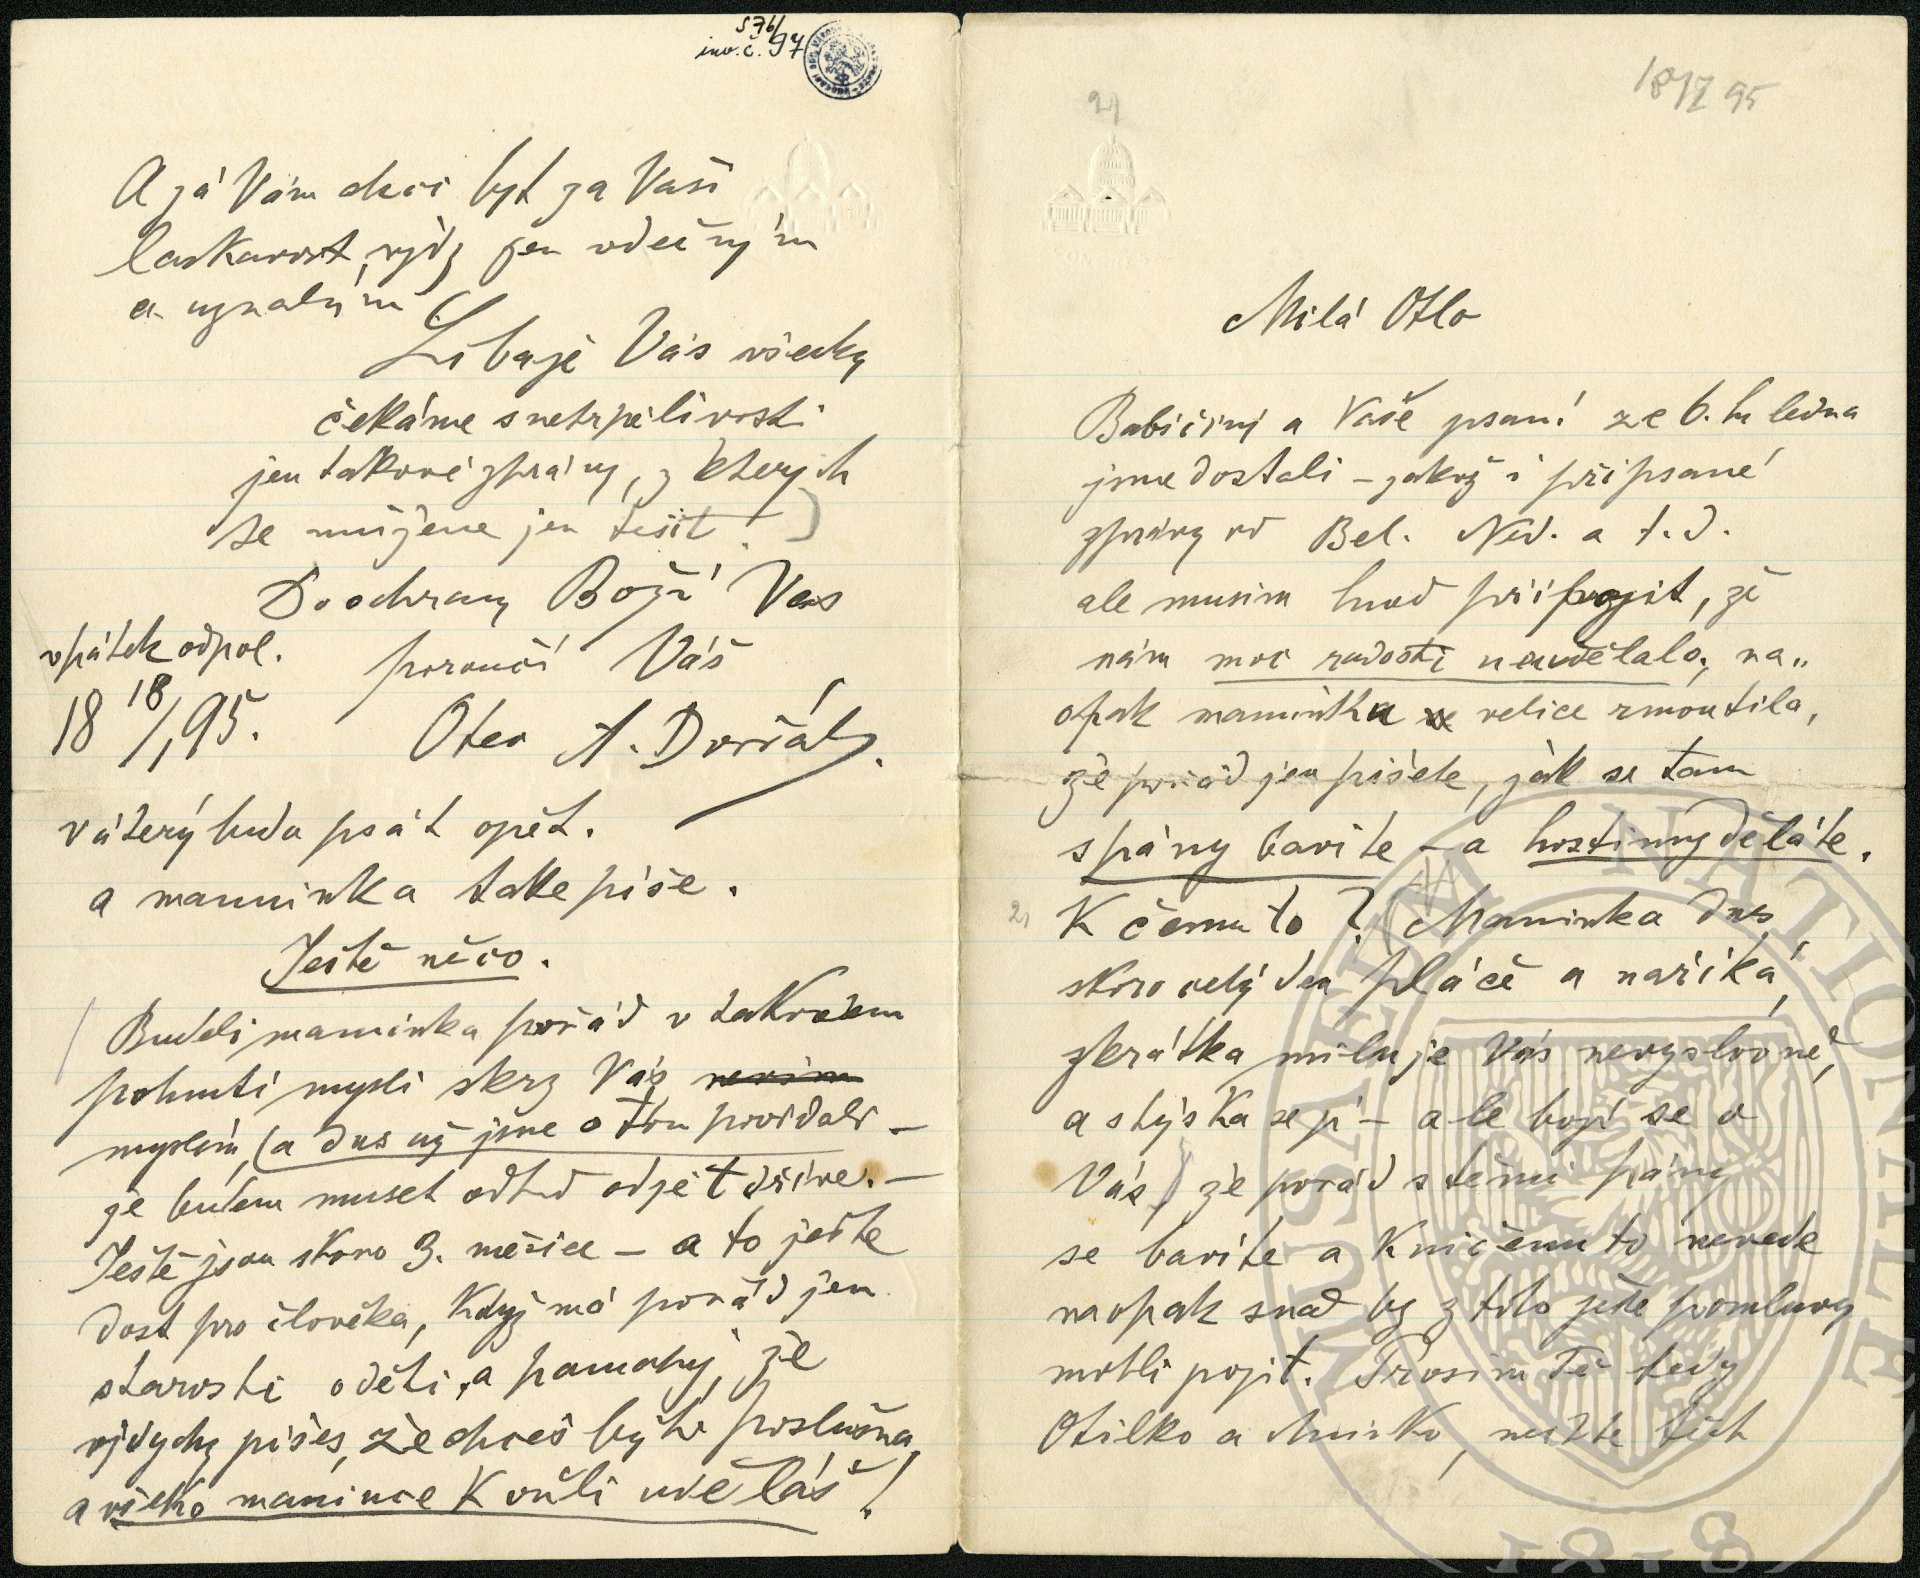 576/
inv. č. 97
A já Vám chci být za Vaši
laskavost, vždy jen vděčným
a uznalým
Líbaje Vás všecky
čekáme s netrpělivostí
jen takové zprávy, z kterých
se můžeme jen těšit.
Do ochrany Boží Vas
poroučí Váš
v pátek odpol.
18 18/1 95.
Otec A. Dvořák.
v úterý budu psát opět.
a maminka take píše.
Ještě něco.
Budeli maminka pořád v takovém
pohnutí mysli skrz Vás
myslím, (a dns už jsme o tom povídali –
že budem muset odtud odjet dříve. –
Ještě jsou skoro 3. měsíce – a to ještě
dost pro člověka, když má pořád jen
starosti o děti, a pamatuj, že
vždycky píšeš, že chceš býti poslušna
a všecko mamince K vůli uděláš!
2)
18 1/1 95
Milá Otlo
Babiččiny a Vaše psaní ze 6. ho ledna
jsme dostali – jakož i připsané
zprávy od Bel. Ned. a t. d.
ale musím hned připojit, že
nám moc radosti neudělalo, na„
opak maminka velice zmoutila,
že pořád jen píšete, jak se tam
s pány bavíte – a hostiny děláte.
K čemu to? Maminka dns
skoro celý den pláče a naříká,
zkrátka miluje Vás nevyslovně,
a stýská se jí – ale bojí se o
Vás, že pořád s těmi pány
se bavíte a K ničemu to nevede
naopak snad by z toho ješte pomluvy
mohli pojit. Prosím Tě tedy
Otilko a Aninko, nechte těch
MUSAEUM NATIONALE
1818